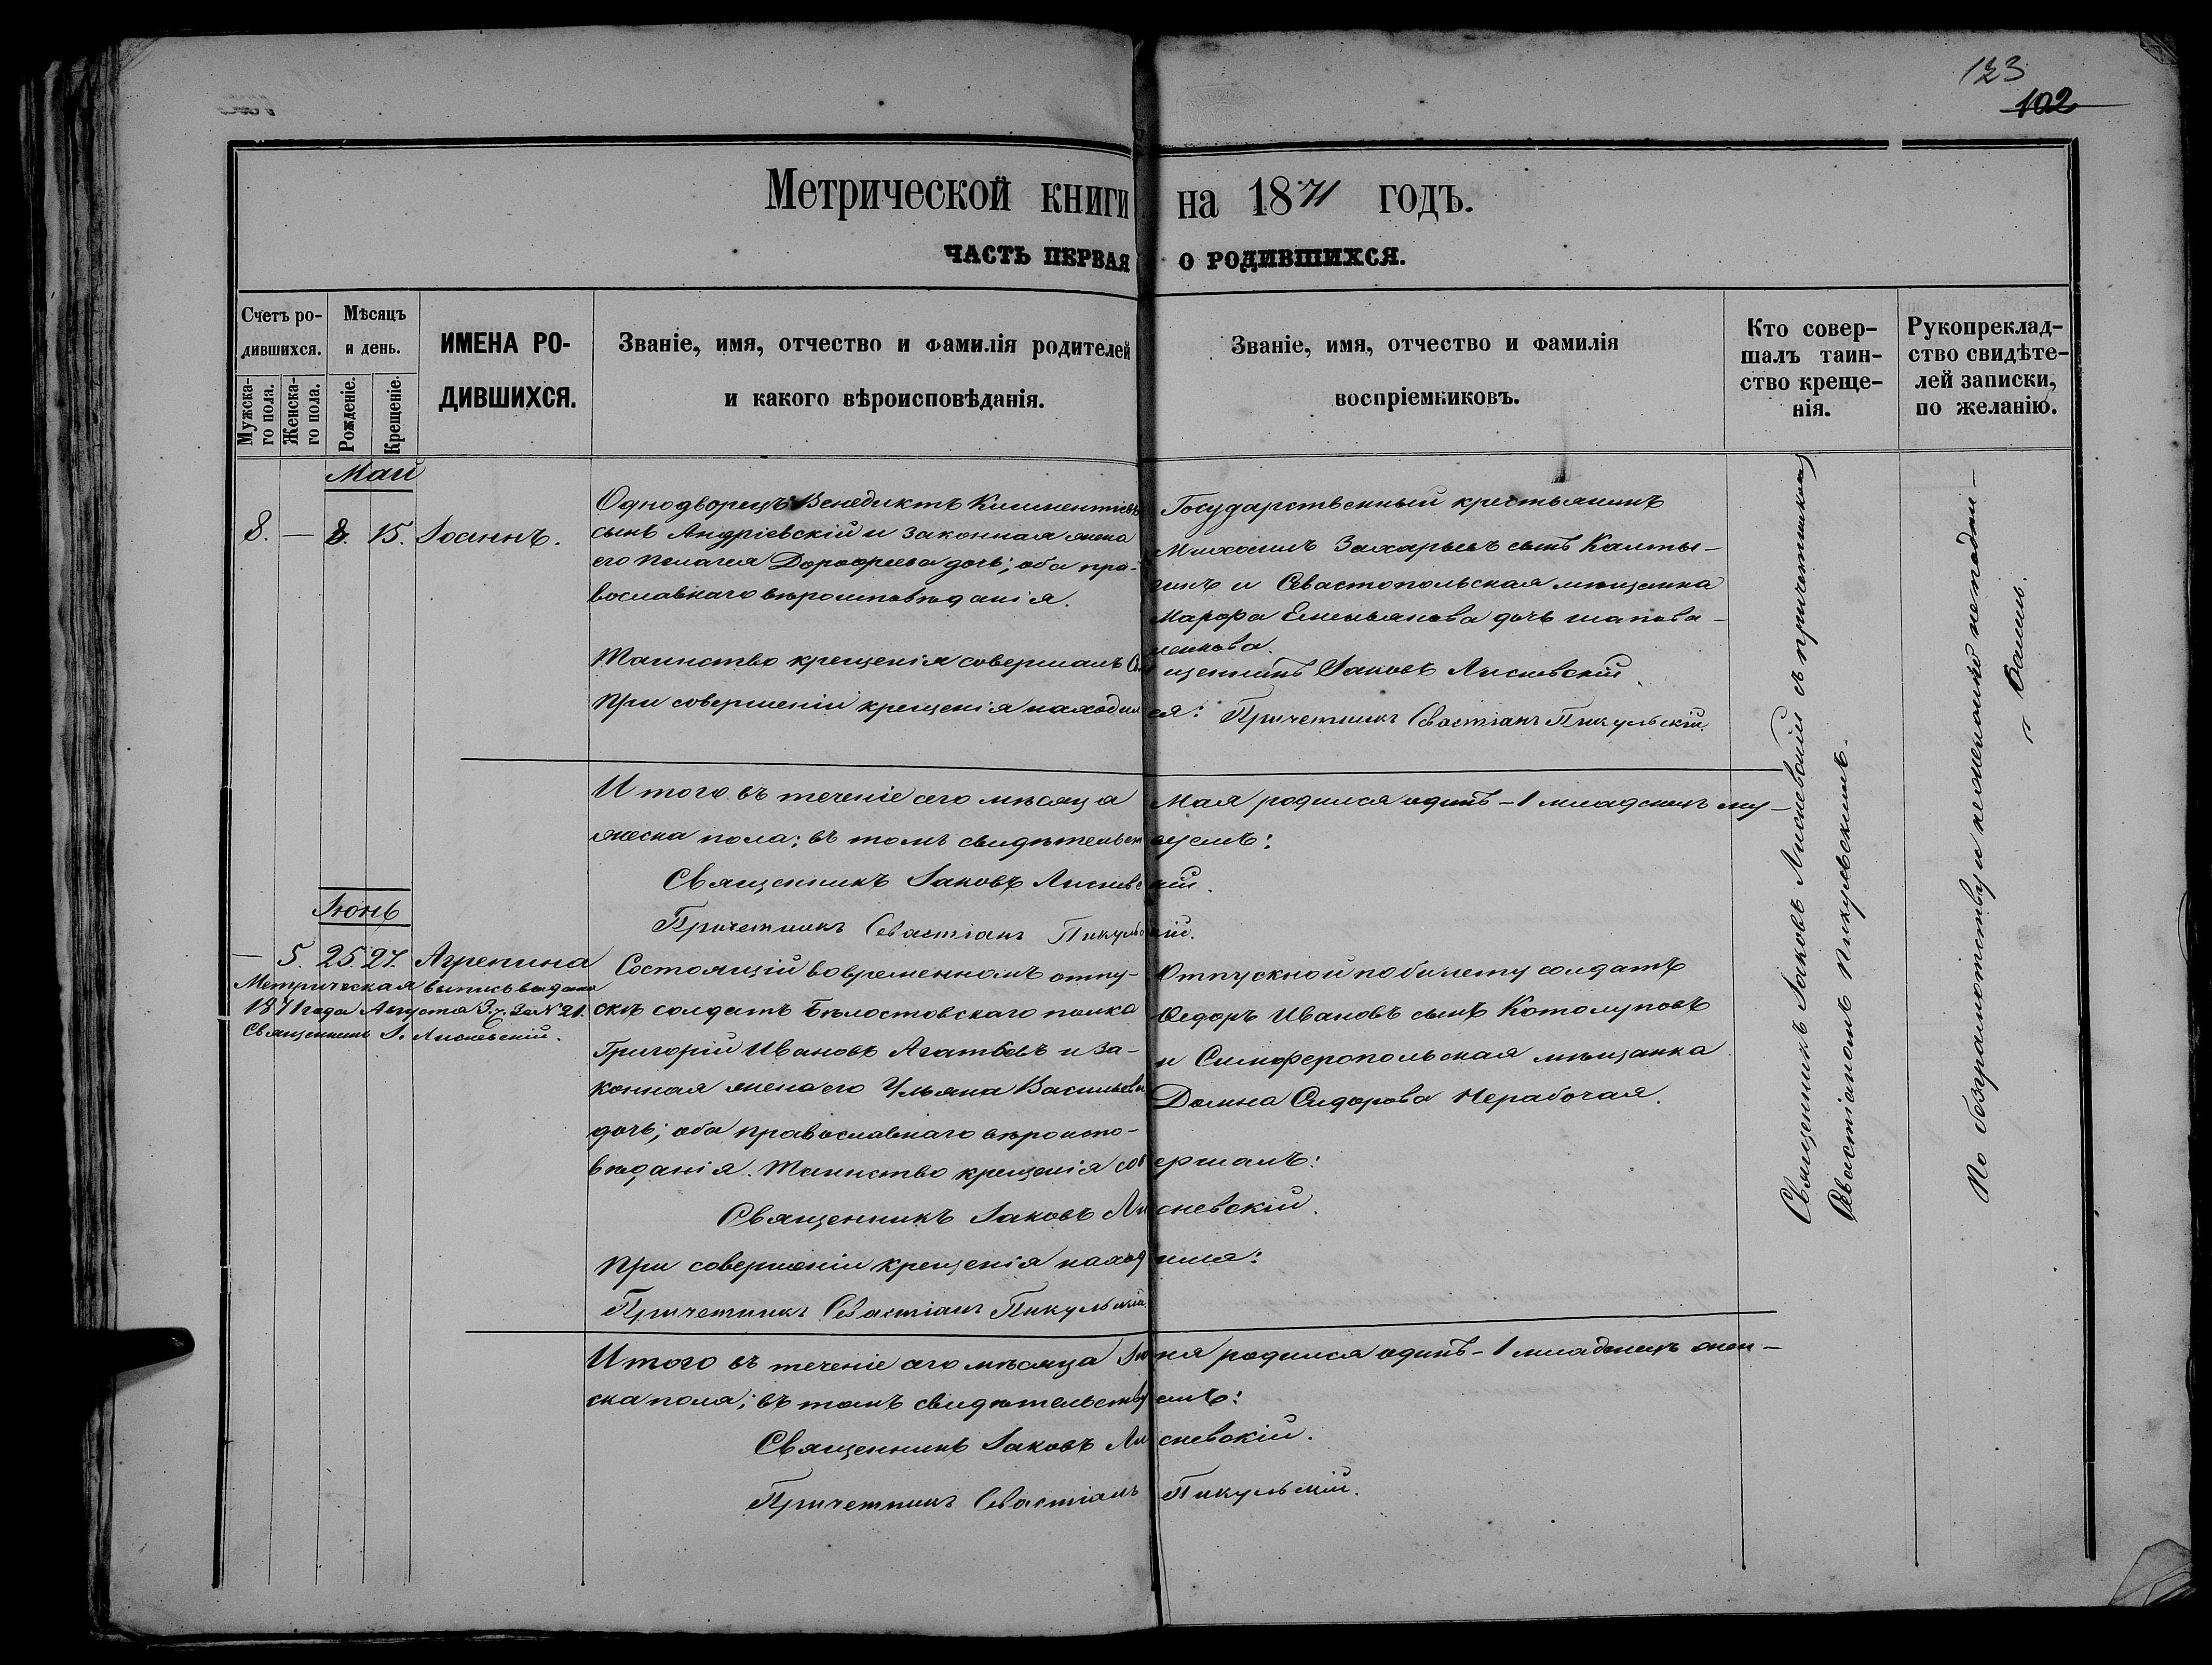 123
102
Метрической книги на 1871 годъ.
ЧАСТЬ ПЕРВАЯ О РОДИВШИХСЯ.
Счетъ ро-
дившихся.
Мужска-
го пола.
Женска-
го пола.
Мѣсяцъ
и день.
Рожденіе.
Крещеніе.
ИМЕНА РО-
ДИВШИХСЯ.
Званіе, имя, отчество и фамилія родителей
и какого вѣроисповѣданія.
Званіе, имя, отчество и фамилія
воспріемниковъ.
Кто совер-
шалъ таин-
ство креще-
нія.
Рукопреклад-
ство свидѣте-
лей записки,
по желанію.
Май
8. — 8. 15. Іоаннъ.
Однодворецъ Венедиктъ Климентіевъ
сынъ Андріевскій и законная жена
его Пелагея Дорофеева дочь; оба пра-
вославнаго вѣроисповѣданія.
Государственный крестьянинъ
Михаилъ Захарьевъ сынъ Калты-
гинъ и Севастопольская мѣщанка
Марфа Емельянова дочь Шапова-
ленкова.
Таинство крещенія совершалъ Священникъ Іаковъ Лисневскій.
При совершеніи крещенія находился: Причетникъ Севастіанъ Пикульскій.
Итого въ теченіе сего мѣсяца Мая родился одинъ - 1 младенецъ му-
жеска пола; въ томъ свидѣтельствуемъ:
Священникъ Іаковъ Лисневскій.
Причетникъ Севастіанъ Пикульскій.
Іюнь
— 5. 25. 27. Агрепина
Метрическая выпись выдана
1871 года Августа 3 д. За № 21.
Священникъ І. Лисневскій.
Состоящій во временномъ отпу-
скѣ солдатъ Бѣлостовскаго полка
Григорій Ивановъ и за-
конная жена его Ульяна Васильева
дочь; оба православнаго вѣроиспо-
вѣданія. Таинство крещенія совершалъ:
Священникъ Іаковъ Лисневскій.
При совершеніи крещенія находился:
Причетникъ Севастіанъ Пикульскій.
Отпускной по билету солдатъ
Ѳедоръ Ивановъ сынъ Котолуповъ
и Симферопольская мѣщанка
Домна Сидорова Нерабочая.
Итого въ теченіе сего мѣсяца Іюня родился одинъ - 1 младенецъ жен-
ска пола; въ томъ свидѣтельствуемъ:
Священникъ Іаковъ Лисневскій.
Причетникъ Севастіанъ Пикульскій.
Священникъ Іаковъ Лисневскій съ причетникомъ
Севастіаномъ Пикульскимъ.
По безграмотству и нежеланію неподпи-
сались.